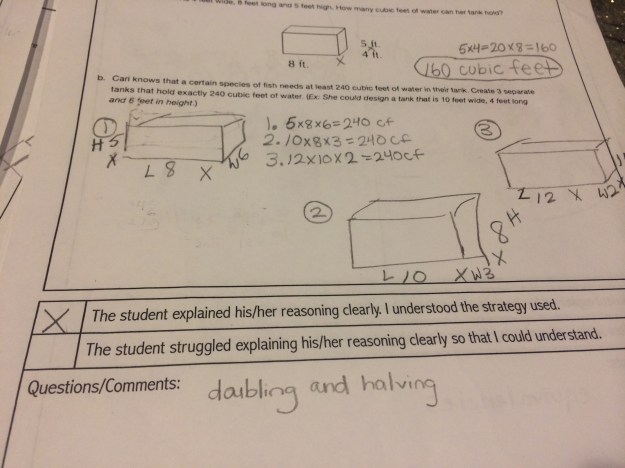 wide, 8 feet long and 5 feet high. How many cubic feet of water can her tank hold?
5 ft.
4 ft.
8 ft.
X
5x4=20x8=160
160 cubic feet
b. Cari knows that a certain species of fish needs at least 240 cubic feet of water in their tank. Create 3 separate
tanks that hold exactly 240 cubic feet of water. (Ex: She could design a tank that is 10 feet wide, 4 feet long
and 6 feet in height.)
1
H 5
X
L 8 X W 6
1. 5x8x6=240 cf
2. 10x8x3=240cf
3. 12x10x2=240cf
3
L 12 X W2 X
2
8 H
X
L 10 X W3
X
The student explained his/her reasoning clearly. I understood the strategy used.
The student struggled explaining his/her reasoning clearly so that I could understand.
Questions/Comments: doubling and halving